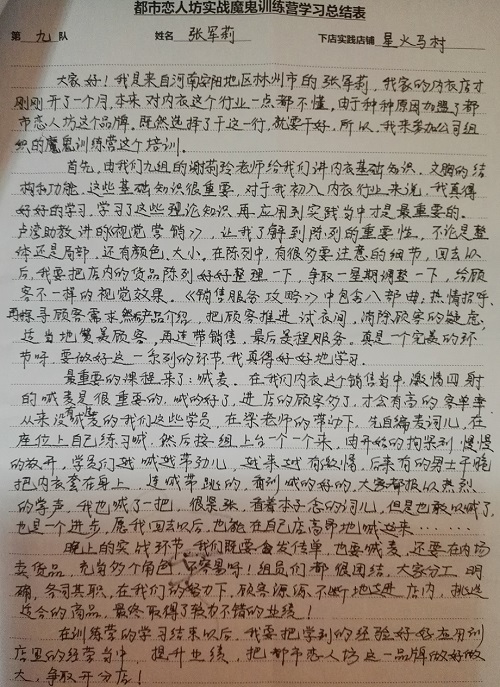 都市恋人坊实战魔鬼训练营学习总结表
第 九 队 姓名 张军莉 下店实践店铺 星火马村
大家好！我是来自河南安阳地区林州市的张军莉，我家的内衣店才
刚刚开了一个月，本来对内衣这个行业一点都不懂，由于种种原因加盟了都
市恋人坊这个品牌。既然选择了干这一行，就要干好，所以，我来参加公司组
织的魔鬼训练营这个培训。
首先，由我们九组的谢莉玲老师给我们讲内衣基础知识，文胸的结
构和功能，这些基础知识很重要，对于我初入内衣行业来说，我真得
好好的学习，学习了这些理论知识，再应用到实践当中才是最重要的。
卢滢助教讲的《视觉营销》，让我了解到陈列的重要性，不论是整
体还是局部，还有颜色、大小，在陈列中，有很多要注意的细节，回去以
后，我要把店内的货品陈列好好整理一下，争取一星期调整一下，给顾
客不一样的视觉效果。《销售服务攻略》中包含八部曲，热情招呼，
再探寻顾客需求，然后产品介绍，把顾客推进试衣间，消除顾客的疑虑，
适当地赞美顾客，再连带销售，最后美程服务。真是一个完美的环
节呀，要做好这一系列的环节，我真得好好地学习。
最重要的课程来了：喊麦。在我们内衣这个销售当中，激情四射
的喊麦是很重要的，喊的好了，进店的顾客多了，才会有高的客单率。
从来没有喊过麦的我们这些学员，在梁老师的带动下，先自编麦词儿，在
座位上自己练习喊，然后按组上台一个一个来，由开始的拘紧到慢慢
的放开，学员们越喊越带劲儿，越来越有激情，后来有的男士干脆
把内衣套在身上，连喊带跳的，看到喊的好的，大家都报以热烈
的掌声，我也喊了一把，很紧张，看着本子念的词儿，但是也敢以喊了，
也是一个进步，愿我回去以后，也能在自己店高昂地喊起来······
晚上的实战环节，我们既要会发传单，也要喊麦，还要在内场
卖货品，充当多个角色，不容易呀！组员们都很团结，大家分工明
确，各司其职，在我们的努力下，顾客源源不断地走进店内，挑选
适合的商品，最终取得了较为不错的业绩！
在训练营的学习结束以后，我要把学到的经验好好应用到
店里的经营当中，提升业绩，把都市恋人坊这一品牌做好做
大，争取开分店！